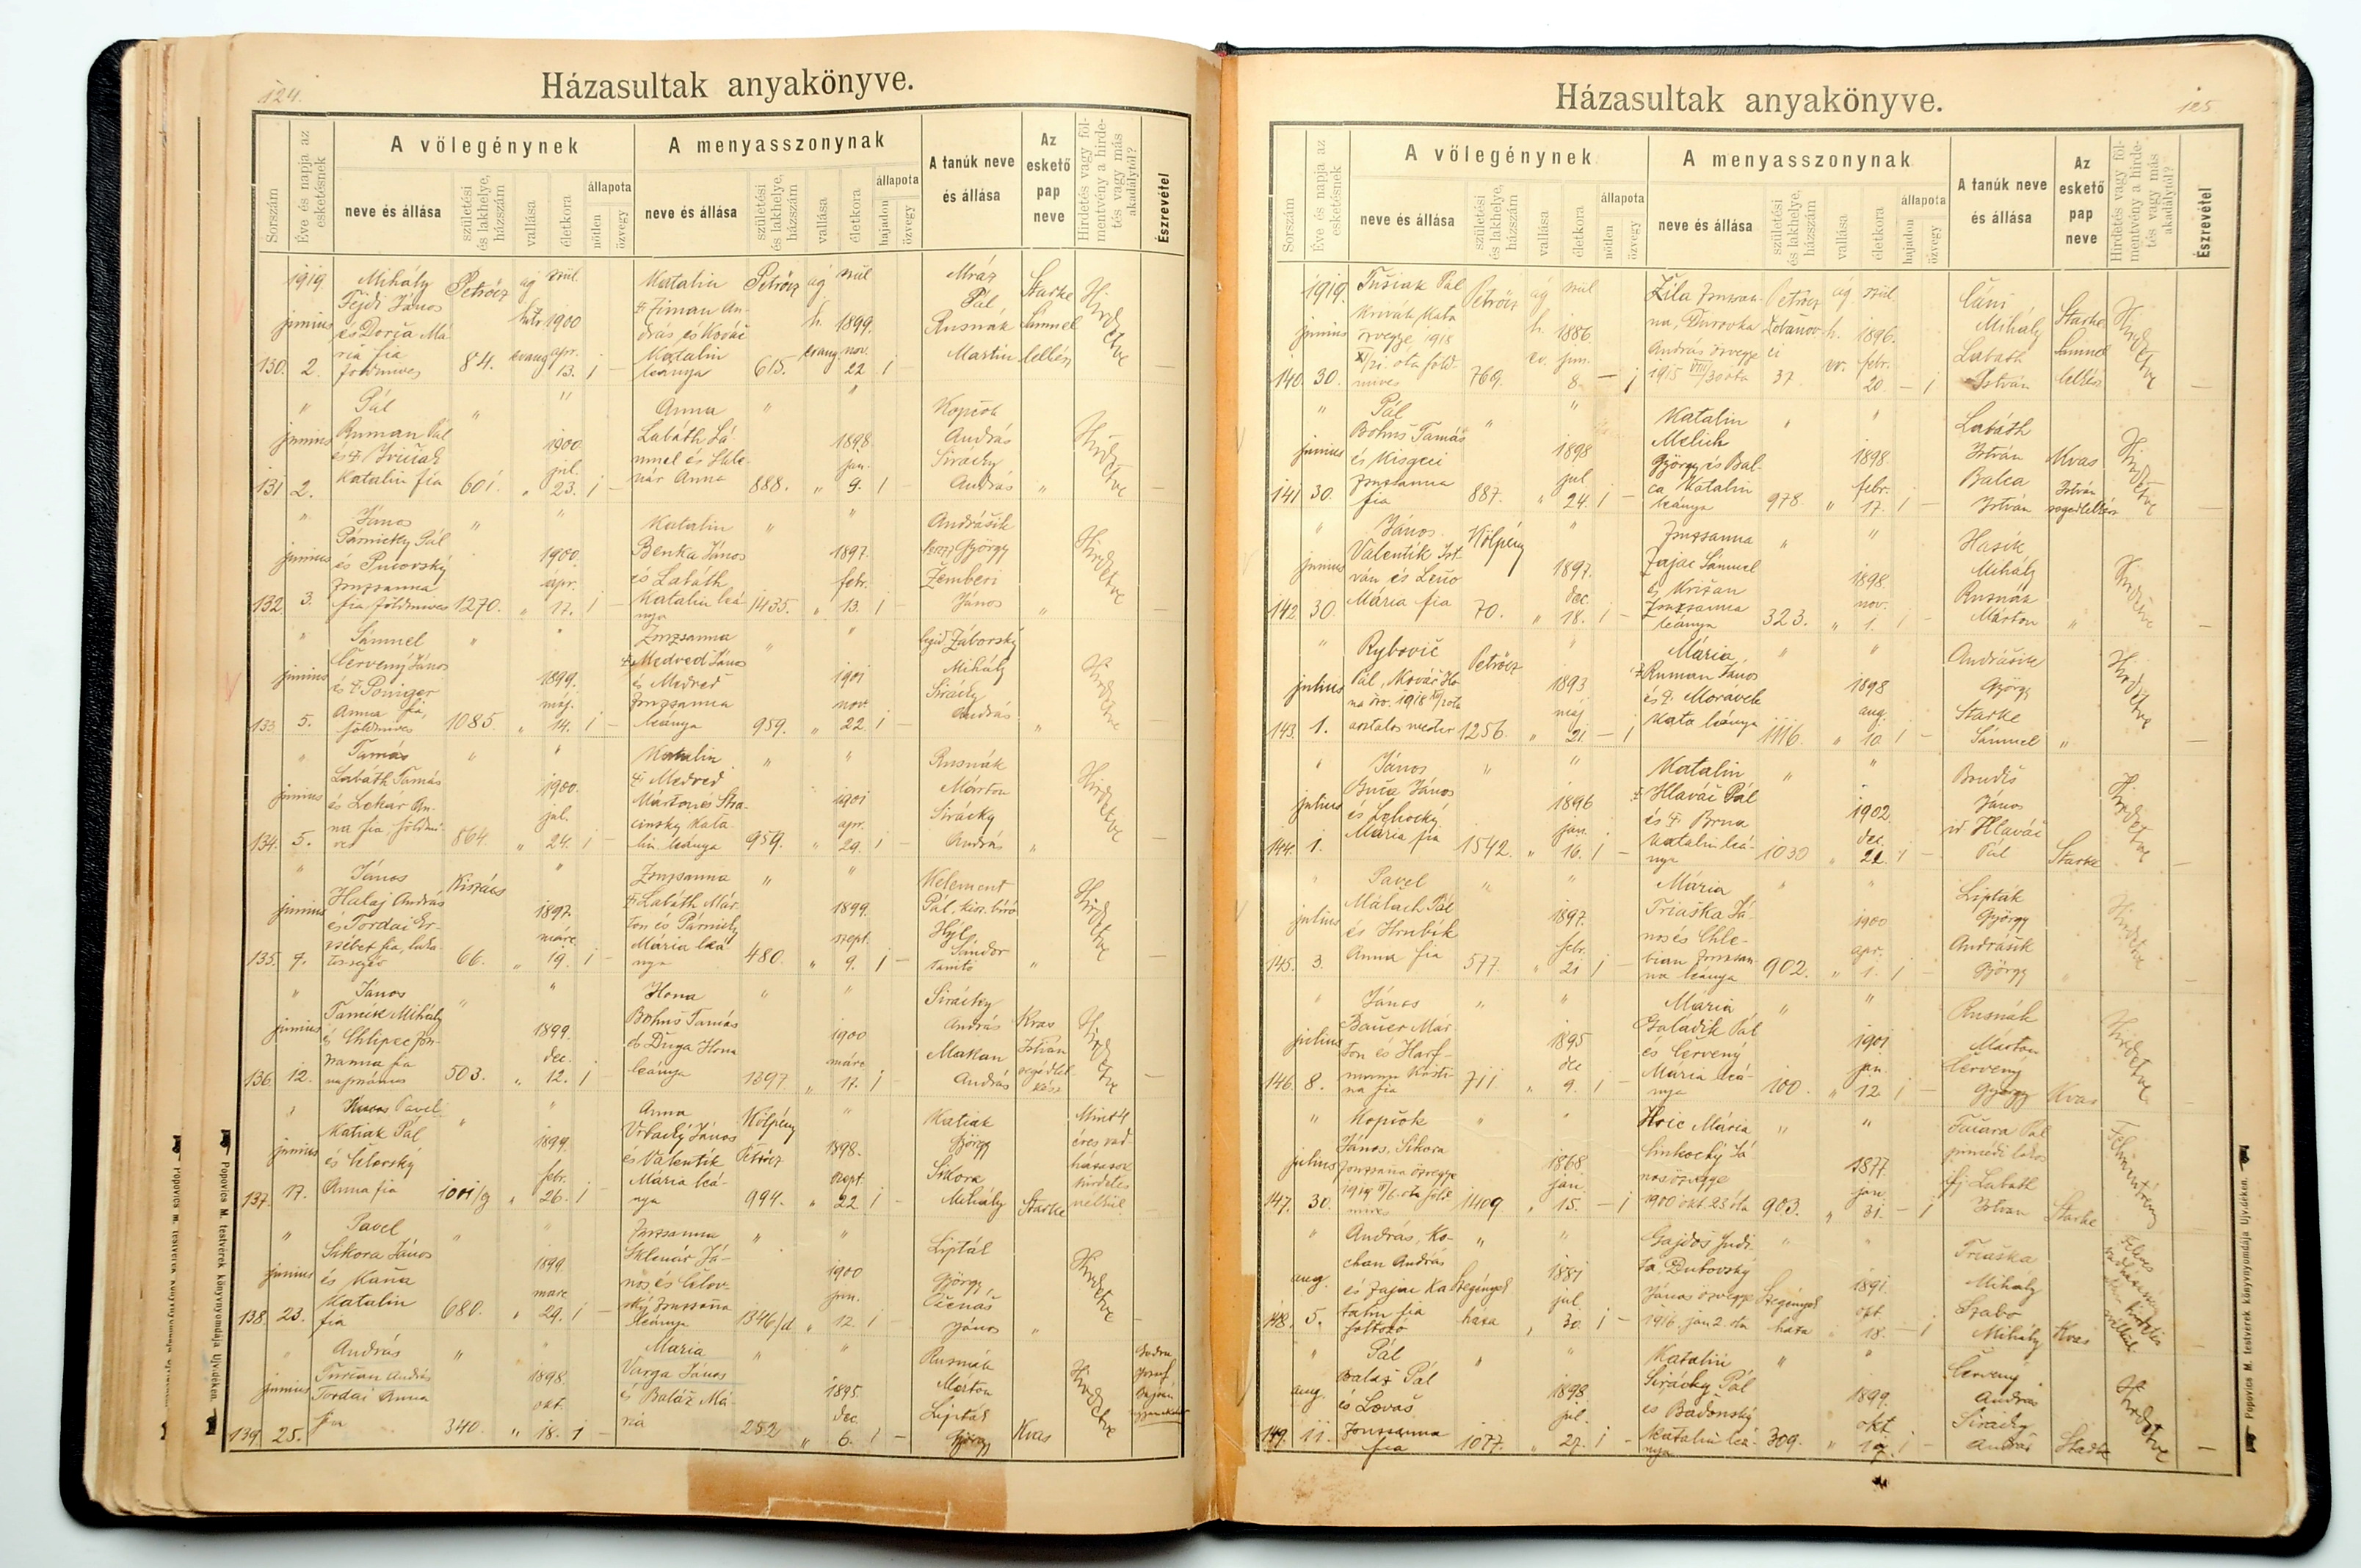 124.
Házasultak anyakönyve.
Sorszám
Éve és napja az esketésnek
A völegénynek
neve és állása
születési és lakhelye, házszám
vallása
életkora
állapota
nőtlen
özvegy
A menyasszonynak
neve és állása
születési és lakhelye, házszám
vallása
életkora
állapota
hajadon
özvegy
A tanúk neve és állása
Az eskető pap neve
Hirdetés vagy fölmentvény a hirdetés vagy más akadálytól?
Észrevétel
1919. Mihály Petrőcz ág szül. Katalin Petrőcz ág szül Mráz Starke Hirdetve
Fejdi János Ziman An- Pál
junius és Doria Má- 1900 drás és Kováč h. 1899. Rusnák Sámuel
ria fia evang apr. Katalin evang nov. Martin lelkész
130. 2. földmives 84. 13. 1 — leánya 615. 22 1 — —
" Pál " " Anna " " Kopčok Hirdetve
junius Ruman Pál 1900. Labáth Sá- 1898. András
jul. muel és Skle- jan. Sirácky
131 2. Katalin fia 601. " 23. 1 — nár Anna 888. " 9. 1 András " —
" János " " Katalin " " Andrášik Hirdetve
junius Párnicky Pál 1900. Benka János 1897. György
és Pucovský apr. és Labáth febr. Žemberi
Zsuzsanna
132 3. fia, földmives 1270. " 17. 1 — Katalin leá- 1435. " 13. 1 — János " —
nya
" Sámuel " " Zsuzsanna " " Záborský Hirdetve
Červený János Medved János Mihály
junius és Poniger 1899. és Medved 1901 Sirácky
Anna fia, máj. Zsuzsanna nov.
133 5. földmives 1085. " 14. 1 — leánya 959. " 22 1 — András " —
" Tamás " " Katalin " " Rusnák Hirdetve
Labáth Tamás Medved Márton
junius és Lekár An- 1900. Márton és Stra- 1901 Sirácky
na fia, földmi- jul. cinsky Kata- apr.
134. 5. ves 864. " 24. 1 — lin leánya 959. " 29. 1 — András " —
" János Kiszács " Zsuzsanna " " Klement Hirdetve
junius Halaj András 1897. Labáth Már- 1899. Pál, kisz. biró
és Tordai Er- márc. ton és Párnicky szept.
zsébet fia, laka- Mária leá- Sándor
135. 7. tossegéd 66. " 19. 1 — nya 480. " 9. 1 — tanító " —
" János " " Ilona " " Sirácky Hirdetve
Tancik Mihály Bohuš Tamás András Kvas
junius és Chlipec Zsu- 1899. és Duga Ilona 1900 Makan István
zsanna fia dec. leánya márc segédlel-
136. 12. napszámos 503. " 12. 1 1397. " 17. 1 András kész —
Pavel " " Anna Kölpény " Katiak Mint 4
Katiak Pál Vrbacký János György éves vad-
junius 1899. és Valentik Petrőcz 1898. Sikora házasok
febr. Mária leá- szept hirdetés
137. 17. Anna fia 1001/g " 26. 1 — nya 994. " 22 1 — Mihály Starke nélkül —
" Pavel " " Zsuzsanna " " Lipták Hirdetve
Sikora János Sklenár Já-
junius és Kaňa 1899 nos és 1900 György
Katalin marc Zsuzsanna jan. Čičnáš
138. 23. fia 680. " 29. 1 — leánya 1346/d " 12. 1 — János " —
András " " Maria " " Rusnák Hirdetve
Turčan András Varga János Márton József
junius Tordai Anna 1898 és Baláž Má- 1895. Lipták
okt. ria dec.
139. 25. fia 340. " 18. 1 — 252 " 6. 1 — György Kvas
Popovics M. testvérek könyvnyomdája Ujvidéken.
125
Házasultak anyakönyve.
Sorszám
Éve és napja az esketésnek
A völegénynek
neve és állása
születési és lakhelye, házszám
vallása
életkora
állapota
nőtlen
özvegy
A menyasszonynak
neve és állása
születési és lakhelye, házszám
vallása
életkora
állapota
hajadon
özvegy
A tanúk neve és állása
Az eskető pap neve
Hirdetés vagy fölmentvény a hirdetés vagy más akadálytól?
Észrevétel
1919. Tušiak Pál Petrőcz ág szül Žila Zsuzsan- Petrőcz ág. szül. Hirdetve
Kováh Kata na, Mihály Starke
junius özvegye 1918 h. 1886. András özvegye h. 1896. Labáth Sámuel
óta föld- ev. jun. ev. febr.
140. 30. mives 769. 8. — 1 1915 VIII/30 óta 37. 20 — 1 István lelkész —
" Pál " " Katalin " " Labáth Hirdetve
Bohuš Tamás Melich
junius és Kisgeci 1898 György és Bal- 1898. István Kvas
Zsuzsanna jul ca Katalin febr. Balca István
141 30. fia 887. " 24. 1 — leánya 978 " 17. 1 — István segédlelkész —
" János Kölpény " Zsuzsanna " " Hasik Hirdetve
junius Valentik Ist- 1897. Zajac Sámuel 1898 Mihály
ván és Leňo dec. és Križan nov. Rusnák
142 30 Mária fia 70. " 18. 1 — Zsuzsanna 323. " 1. 1 — Márton " —
leánya
" Rybovič Petrőcz " Mária " " Andrášik Hirdetve
julius Pál, Kováč Ho- 1893 Ruman János 1898 György
na öv. 1918 máj és Moravek aug. Starke
143. 1. asztalos mester 1256. " 21. — 1 Kata leánya 1116. " 10. 1 — Sámuel " —
" János " " Katalin " " Boudiš Hirdetve
julius Guča János 1896 Hlaváč Pál 1902. János
és Lehocký jan. és Brna dec. id Hlaváč
144. 1. Mária fia 1542. " 16. 1 — Katalin leá- 1030 " 22. 1 — Pál Starke —
nya
" Pavel " " Mária " " Lipták Hirdetve
julius Málach Pál 1897. Triaška Já- 1900 György
és Hrubik febr. nos és Chle- apr. Andrášik
145. 3. Anna fia 577. " 21 1 — bian Zsuzsan- 902. " 1. 1 — György "
na leánya
" János " " Mária " " Rusnák Hirdetve
julius Bauer Már- 1895 Galádik Pál 1901 Márton
ton és Harf- dec és Červený jan. Červeny
146. 8. na fia 711. " 9. 1 — Maria leá- 100. " 12 1 — György Kvas —
nya
" Kopčok " " Hric Mária " " Fačara Pál Felmentvény
julius János, Sikora 1868 Sinkocký Já- 1877. ifj Labáth
Zsuzsanna özvegye jan. nos özvegye jan.
147. 30. mives 1409. " 15. — 1 1900 okt. 23 óta 903. " 31. — 1 István Starke —
" András, Ko- " " Gajdoš Judi- " " Triaška
chan András ta, Dubovský Mihály
aug. és Zajac Ka- Szegények 1881 János özvegye Szegények 1891. Szabo
talin fia jul. okt.
148. 5. foltozó háza " 30. 1 — 1916. jan 2. óta háza " 18. — 1 Mihály Kvas
" Pál " " Katalin " " Červeny Hirdetve
aug. Baláž Pál 1898. Sirácky Pál 1899. András
és Lovaš jul. és Badonský okt. Sirácky
149. 11. Zsuzsanna 1077. " 27. 1 — Katalin leá- 309. " 19. 1 — András Starke —
fia nya
Popovics M. testvérek könyvnyomdája Ujvidéken.